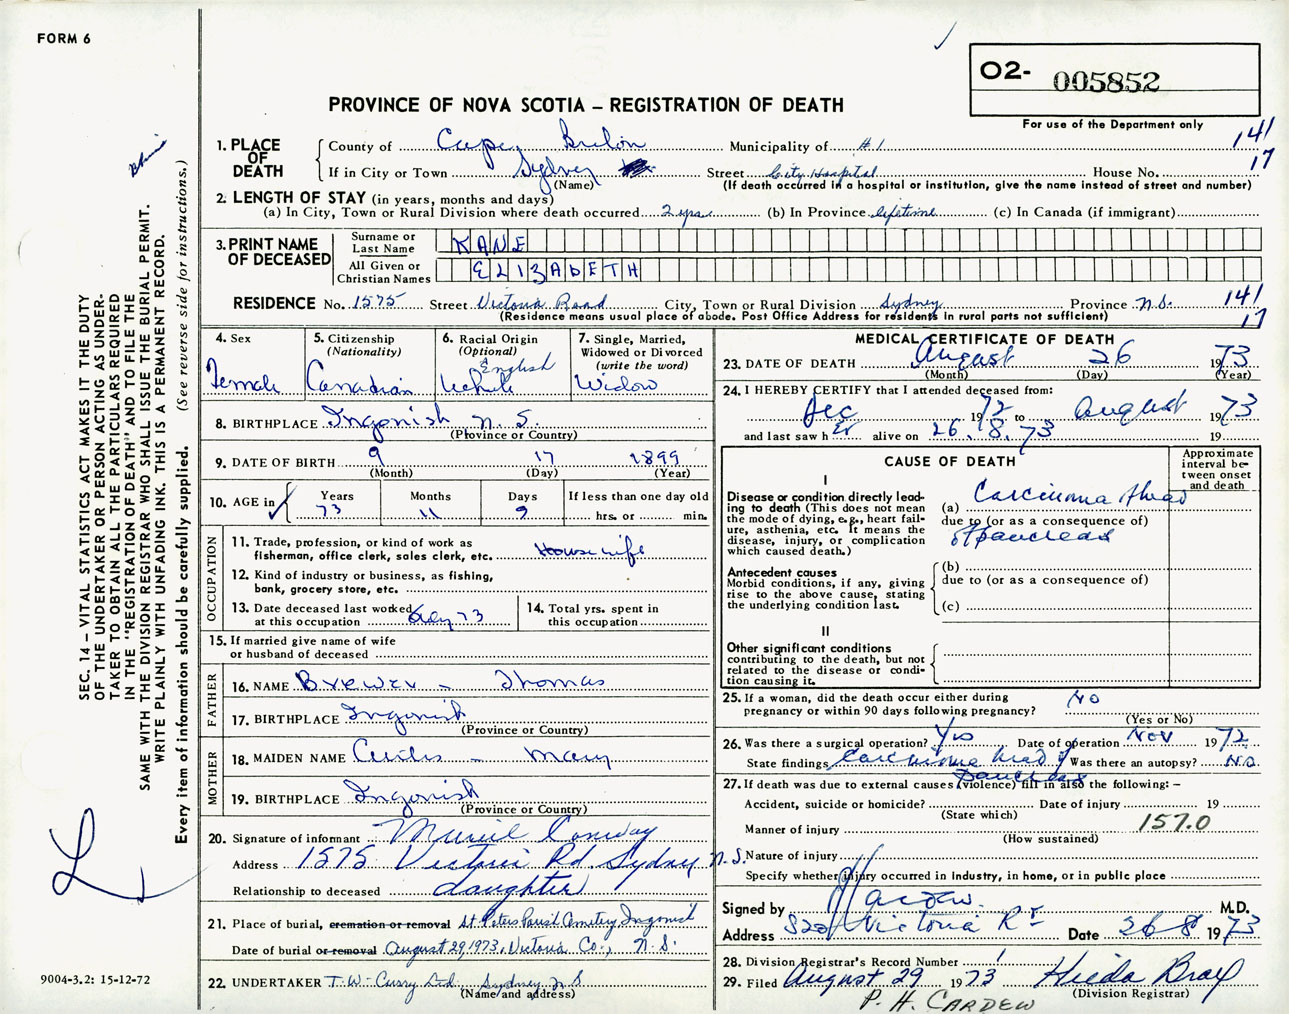 FORM 6
O2- 005852
PROVINCE OF NOVA SCOTIA – REGISTRATION OF DEATH
For use of the Department only
141
17
1. PLACE OF DEATH
County of Cape Breton Municipality of #1
If in City or Town Sydney (Name) Street City Hospital House No.
(If death occurred in a hospital or institution, give the name instead of street and number)
2. LENGTH OF STAY (in years, months and days)
(a) In City, Town or Rural Division where death occurred 2 yrs (b) In Province lifetime (c) In Canada (if immigrant)
3. PRINT NAME OF DECEASED
Surname or Last Name KANE
All Given or Christian Names ELIZABETH
RESIDENCE No. 1575 Street Victoria Road City, Town or Rural Division Sydney Province N.S.
(Residence means usual place of abode. Post Office Address for residents in rural parts not sufficient)
141
17
4. Sex
Female
5. Citizenship
(Nationality)
Canadian
6. Racial Origin
(Optional)
English
White
7. Single, Married,
Widowed or Divorced
(write the word)
Widow
8. BIRTHPLACE Ingonish N.S.
(Province or Country)
9. DATE OF BIRTH 9 17 1899
(Month) (Day) (Year)
10. AGE in Years 73 Months 11 Days 9 If less than one day old hrs. or min.
OCCUPATION
11. Trade, profession, or kind of work as
fisherman, office clerk, sales clerk, etc. Housewife
12. Kind of industry or business, as fishing,
bank, grocery store, etc.
13. Date deceased last worked
at this occupation 73
14. Total yrs. spent in
this occupation
15. If married give name of wife
or husband of deceased
FATHER
16. NAME Brewer – Thomas
17. BIRTHPLACE Ingonish
(Province or Country)
MOTHER
18. MAIDEN NAME Curtis – Mary
19. BIRTHPLACE Ingonish
(Province or Country)
20. Signature of informant Muriel Conway
Address 1575 Victoria Rd. Sydney N.S.
Relationship to deceased daughter
21. Place of burial, cremation or removal St. Peters Parish Cemetery Ingonish
Date of burial or removal August 29, 1973, Victoria Co., N.S.
22. UNDERTAKER T.W. Curry Ltd. Sydney N.S
(Name and address)
MEDICAL CERTIFICATE OF DEATH
23. DATE OF DEATH August 26 1973
(Month) (Day) (Year)
24. I HEREBY CERTIFY that I attended deceased from:
Dec 1972 to August 1973
and last saw h er alive on 26.8.73 19
CAUSE OF DEATH
Approximate
interval be-
tween onset
and death
I
Disease or condition directly lead-
ing to death (This does not mean
the mode of dying, e.g., heart fail-
ure, asthenia, etc. It means the
disease, injury, or complication
which caused death.)
(a) Carcinoma Head
due to (or as a consequence of)
of Pancreas
Antecedent causes
Morbid conditions, if any, giving
rise to the above cause, stating
the underlying condition last.
(b)
due to (or as a consequence of)
(c)
II
Other significant conditions
contributing to the death, but not
related to the disease or condi-
tion causing it.
25. If a woman, did the death occur either during
pregnancy or within 90 days following pregnancy? No
(Yes or No)
26. Was there a surgical operation? Yes Date of operation Nov 1972
State findings Carcinoma head of pancreas Was there an autopsy? No
27. If death was due to external causes (violence) fill in also the following: –
Accident, suicide or homicide? Date of injury 19
(State which)
Manner of injury 157.0
(How sustained)
Nature of injury
Specify whether injury occurred in industry, in home, or in public place
Signed by P H Cardew. M.D.
Address 320 Victoria Rd Date 26 8 1973
28. Division Registrar's Record Number 1
29. Filed August 29 1973
(Division Registrar)
P. H. CARDEW
SEC. 14 – VITAL STATISTICS ACT MAKES IT THE DUTY
OF THE UNDERTAKER OR PERSON ACTING AS UNDER-
TAKER TO OBTAIN ALL THE PARTICULARS REQUIRED
IN THE "REGISTRATION OF DEATH" AND TO FILE THE
SAME WITH THE DIVISION REGISTRAR WHO SHALL ISSUE THE BURIAL PERMIT.
WRITE PLAINLY WITH UNFADING INK. THIS IS A PERMANENT RECORD.
Every item of information should be carefully supplied. (See reverse side for instructions.)
9004-3.2: 15-12-72